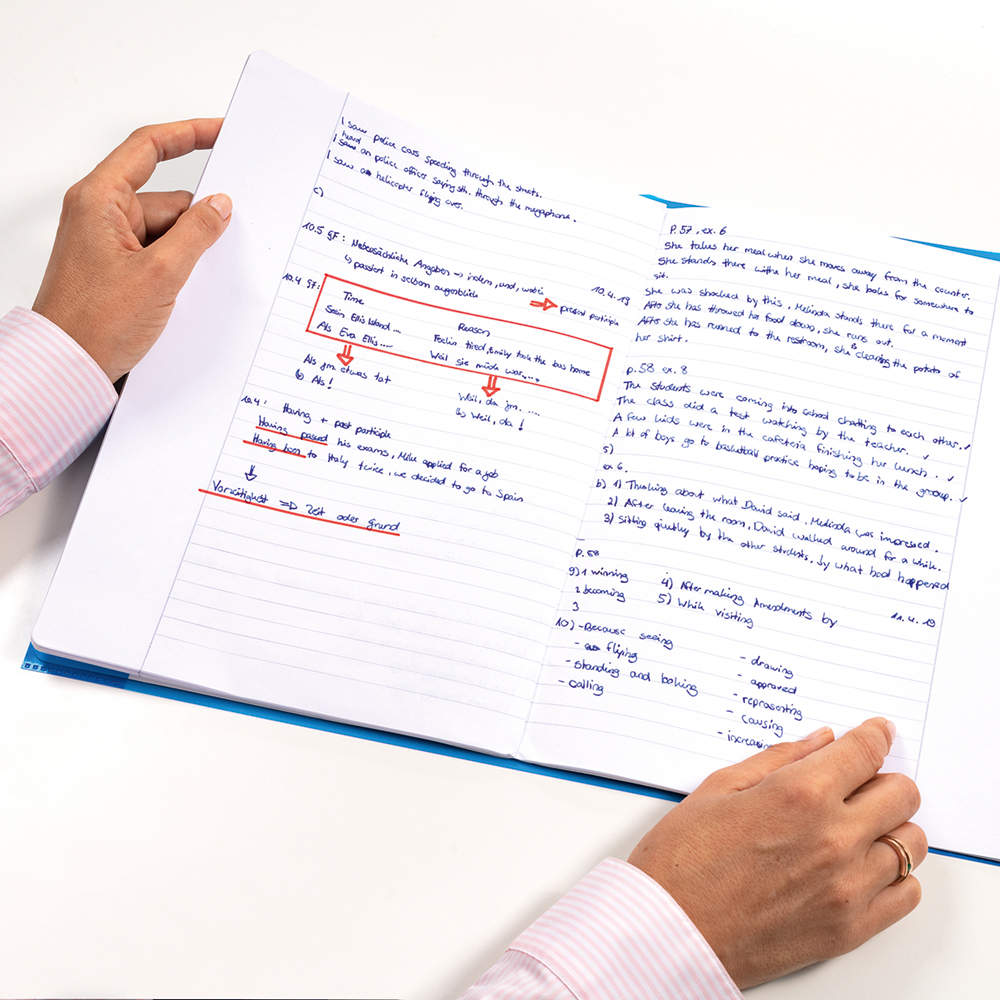 I saw police cars speeding through the streets.
heard
I saw an police officer saying sth. through the megaphone.
I saw a helicopter flying over.
c)
10.5 gF: Nebensächliche Angaben → indem, und, wobei
↳ passiert in selben augenblick
⇒ present participle
10.4 gF:
10.4.19
Time
Reason
Seein Ellis Island ...
Feelin tired, Emily took the bus home
Als Eva Ellis....
Weil sie müde war,...,
Als jm etwas tat
Weil, da jm. ....
↳ Als!
↳ Weil, da !
10.4: Having + past participle
Having passed his exams, Mike applied for a job
Having been to Italy twice, we decided to go to Spain
Vorzeitigkeit => Zeit oder Grund
P. 57, ex. 6
She takes her meal when she moves away from the counter.
She stands there withe her meal, she looks for somewhere to
sit.
She was shocked by this, Melinda stands there for a moment
After she has throwed he food down, she runs out.
After she has runned to the restroom, she is cleaning the potato of
her shirt.
p. 58 ex. 8
The students were coming into school chatting to each other. ✓
The class did a test watching by the teacher. ✓
A few kids were in the cafeteria finishing her lunch. ✓
A lot of boys go to basketball practice hoping to be in the group. ✓
5)
ex 6.
b) 1) Thinking about what David said, Melinda was impressed.
2) After leaving the room, David walked around for a while.
3) Sitting quietley by the other students, by what had happened
P. 58
9) 1 winning
4) After making Amendments by
2 becoming
5) While visiting
3
11.4.19
10) - Because seeing
- flying
- standing and looking
- calling
- drawing
- approved
- representing
- causing
- increasing